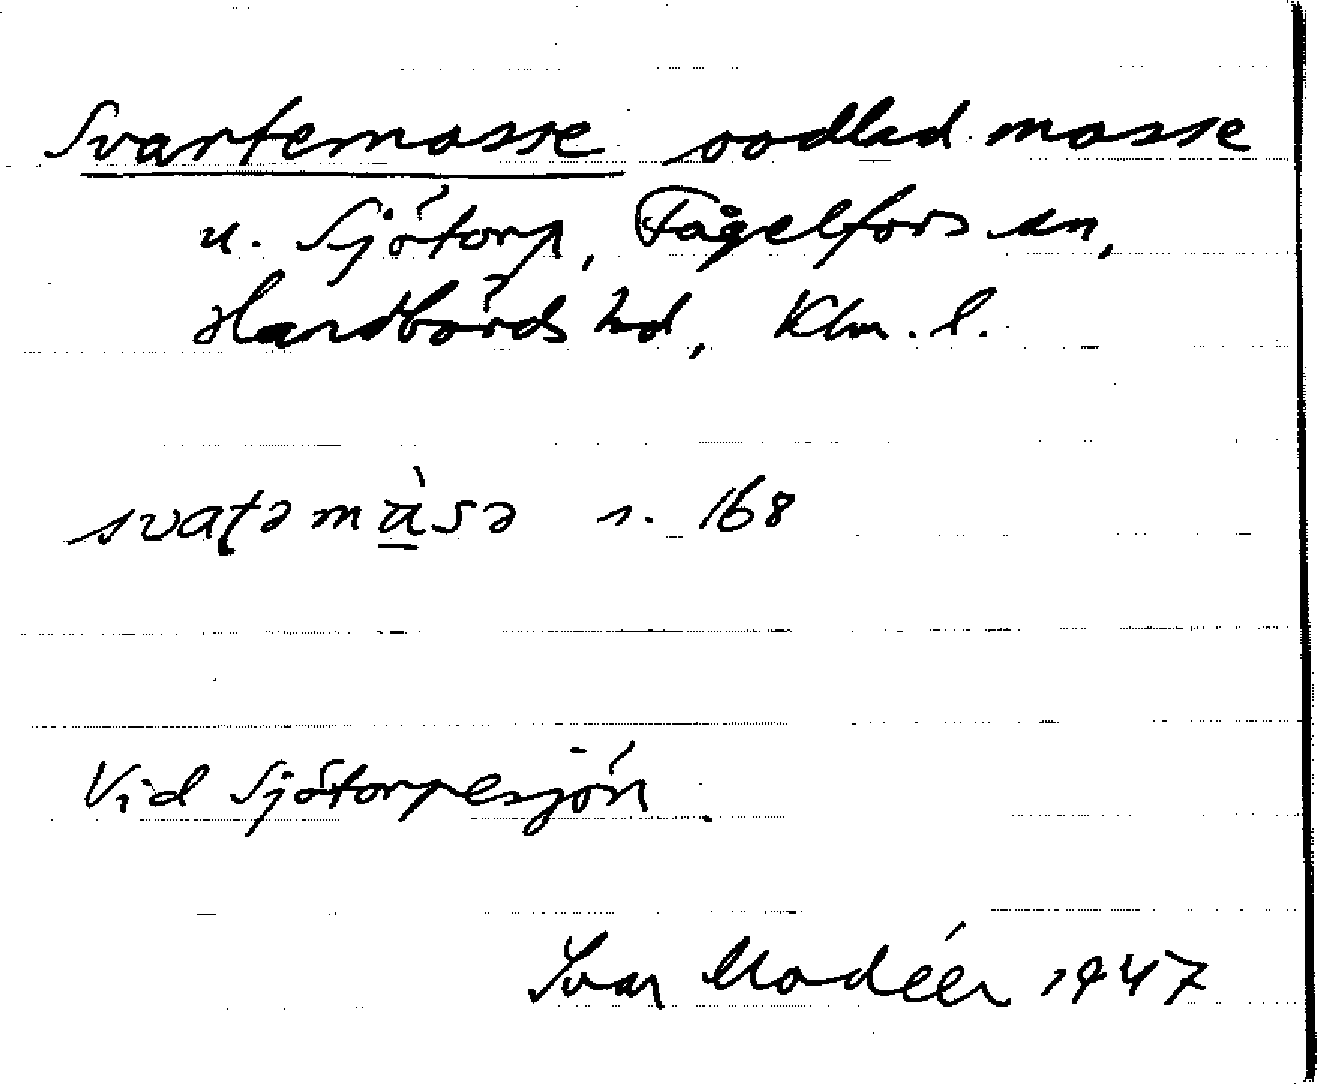 Svartemosse oodlad mosse
u. Sjötorp, Fågelfors sn,
Handbörds hd, Klm. l.
svaʈəmùsə s. 168
Vid Sjötorpesjön
Ivar Modéer 1947